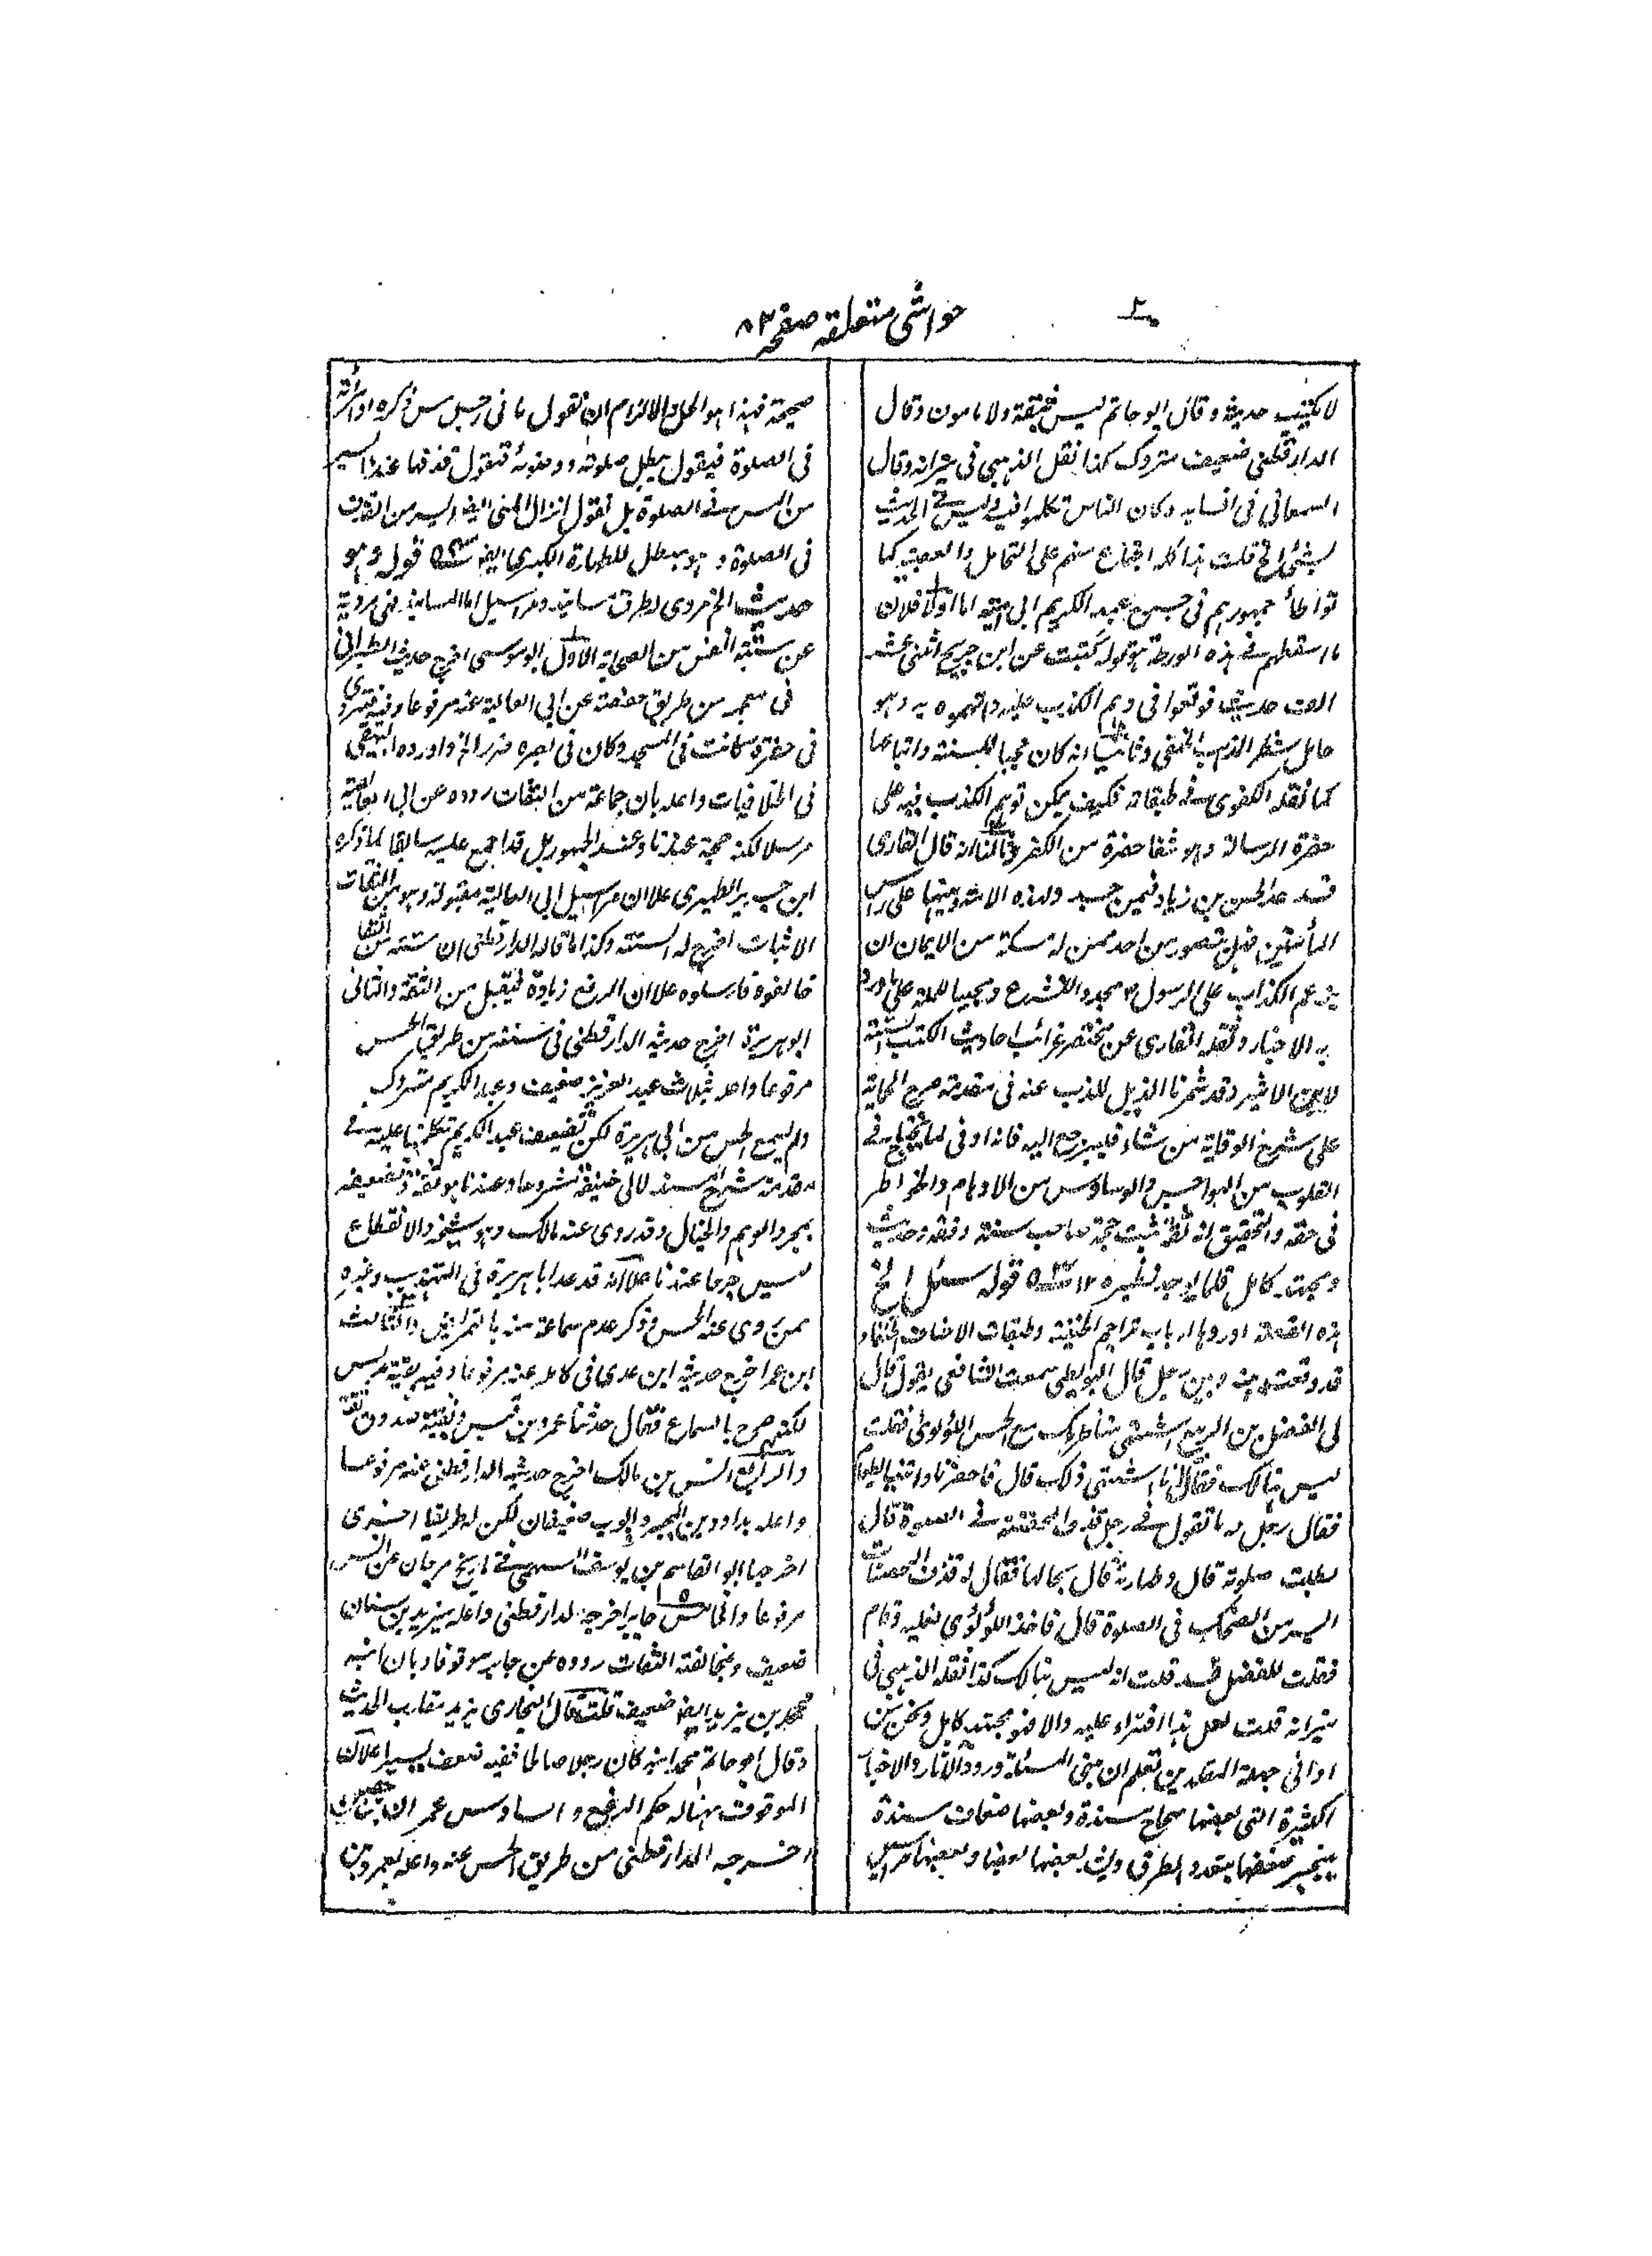 حواشی متعلقہ صفحہ ۸۳
لا يكتب حديثه وقال ابو حاتم ليس بثقة ولا مامون وقال
الدارقطني ضعيف متروك كذا نقل الذهبي في ميزانه وقال
السمعاني في انسابه وكان الناس تكلموا فيه وليس في الحديث
بشئ الخ قلت هذا كله اجتماع منهم على التحامل والعصبية كما
تواطأ جمهورهم في حسن عبد الكريم ابي امية اما اولا فلان
ما اسقطهم في هذه الورطة قوله كتبت عن ابن جريج اثنى عشر
الف حديث فوقعوا في وهم الكذب عليه واتهموه به وهو
حامل شطر المذهب الحنفي وثانيا انه كان محبا للسنة واتباعها
كما نقله الكفوي في طبقاته فكيف يمكن توهم الكذب فيه على
حضرة الرسالة وهو شفا حفرة من الكفر وثالثا انه قال القاري
قد عد الحسن بن زياد فيمن جدد لهذه الامة دينها على راس
المأتين فهل يتصور من احد ممن له مسكة من الايمان ان
يزعم الكذاب على الرسول مجددا للشرع ومحييا للملة على ما ورد
به الاخبار ونقله القاري عن مختصر غرائب احاديث الكتب الستة
لابن الاثير وقد شمرنا الذيل للذب عنه في مقدمة صرح الحماية
على شرح الوقاية من شاء فليرجع اليه فانه اوفى لما يختلج في
القلوب من الهواجس والوساوس من الاوهام والخواطر
في حقه والتحقيق انه ثقة ثبت حجة صاحب سنة وفقه وحديث
ومجتهد كامل قلما يوجد نظيره ١٢ قوله سئل الخ
هذه القصة اوردها ارباب تراجم الحنفية وطبقات الاحناف
قد وقعت بينه وبين رجل قال البويطي سمعت الشافعي يقول قال
لي الفضل بن الربيع اشتهي مناظرتك مع الحسن اللؤلوئي فقلت
ليس هنالك فقال انا اشتهي ذلك قال فاحضرنا واتينا بالطعام
فقال رجل له ما تقول في رجل قذف المحصنة في الصلوة قال
بطلت صلوته قال وطهارته قال بحالها فقال له قذف المحصنات
ايسر من الضحك في الصلوة قال فاخذ اللؤلؤي نعليه وقام
فقلت للفضل قد قلت انه ليس هنالك كذا نقله الذهبي في
ميزانه قلت لعل هذا افتراء عليه والا فهو مجتهد كامل ونحن من
اداني جهلة المقلدين نعلم ان مبنى المسئلة ورود الآثار والاخبار
الكثيرة التي بعضها صحاح مسندة وبعضها ضعاف مسندة
ينجبر ضعفها بتعدد الطرق وليث بعضها بعضا وبعضها مراسيل
صحيحة فهذا هو الحل والالزام ان نقول ما في رجل مس ذكره او امرأة
في الصلوة فيقول يبطل صلوته ووضوئه فنقول قذفها عندنا ايسر
من المس في الصلوة بل نقول انزال المني ايضا ايسر من القذف
في الصلوة وهو مبطل للطهارة الكبرى ايضا قوله وهو
حديث الخ مروي بطرق مسانيد ومراسيل اما المسانيد فهي مروية
عن ستة انفس من الصحابة الاول ابو موسى اخرج حديثه الطبراني
في معجمه من طريق حفصة عن ابي العالية عنه مرفوعا وفيه فتردى
في حفرة كانت في المسجد وكان في بصره ضرر الخ واورده البيهقي
في الخلافيات واعله بان جماعة من الثقات رووه عن ابي العالية
مرسلا لكنه حجة عندنا وعند الجمهور بل قد اجمع عليه سابقا كما ذكره
ابن جرير الطبري علا ان مراسيل ابي العالية مقبولة وهو من الثقات
الاثبات اخرج له الستة وكذا ما قاله الدارقطني ان ستة من الثقات
خالفوه فارسلوه علا ان الرفع زيادة فيقبل من الثقة والثاني
ابو هريرة اخرج حديثه الدارقطني في سننه من طريق الحسن
مرفوعا واعله بثلاث عبد العزيز ضعيف وعبد الكريم متروك
ولم يسمع الحسن من ابي هريرة لكن تضعيف عبد الكريم تكلمنا عليه في
مقدمة شرح المسند لابي حنيفة مشروعا وعندنا هو ثقة وتضعيفه
بمجرد الوهم والخيال وقد روى عنه مالك وهو شيخه والانقطاع
ليس جرحا عندنا علا انه قد عد ابا هريرة في التهذيب وغيره
ممن روى عنه الحسن وذكر عدم سماعه منه بالتمريض والثالث
ابن عمر اخرج حديثه ابن عدي في كامله عنه مرفوعا وفيه بقية مدلس
لكنه صرح بالسماع فقال حدثنا عمرو بن قيس وبقية صدوق ثقة
والرابع انس بن مالك اخرج حديثه الدارقطني عنه مرفوعا
واعله بداود بن المحبر وايوب ضعيفان لكن له طريقا اخرى
اخرجها ابو القاسم بن يوسف السهمي في تاريخ جرجان عن انس
مرفوعا والخامس جابر اخرجه الدارقطني واعله بيزيد بن سنان
ضعيف وبمخالفته الثقات رووه عن جابر موقوفا وبان ابنه
محمد بن يزيد ايضا ضعيف قلت قال البخاري يزيد مقارب الحديث
وقال ابو حاتم محمد ابنه كان رجلا صالحا ففيه ضعف يسير علا ان
الموقوف هنا له حكم الرفع والسادس عمران بن حصين
اخرجه الدارقطني من طريق الحسن عنه واعله بعمرو بن